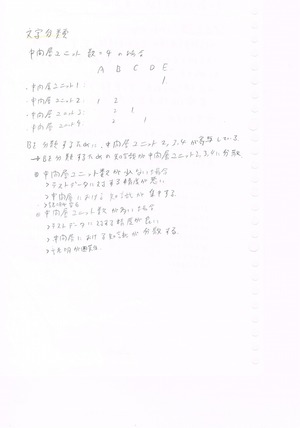 文字分類
中間層ユニット数=4の場合
A B C D E
・中間層ユニット1: 1
・中間層ユニット2: 1 2
中間層ユニット3: 2 1
中間層ユニット4: 2 1
Bを分類するために、中間層ユニット2,3,4が寄与している
→Bを分類するための知識が中間層ユニット2,3,4に分散
中間層ユニット数が少ない場合
>テストデータに対する精度が悪い
>中間層における知識が集中する
中間層ユニット数が多い場合
>テストデータに対する精度が良い
>中間層における知識が分散する